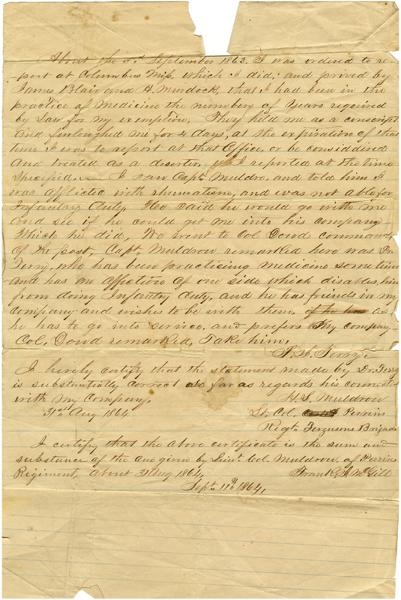 About the 3d September 1863. I was ordered to re-
port at Columbus Miss. which I did; and proved by
James Blair and H. Murdock, that I had been in the
practice of Medicine the number of Years required
by Law for my exemption. They held me as a conscript
and furloughed me for 4 days, at the expiration of that
time I was to report at that Office, or be considdered
and treated as a deserter, I reported at the time
Specified. I saw Capt. Muldro, and told him I
was afflicted with rhumatism, and was not able for
Infantry duty. He said he would go with me
and see if he could get me into his company
Which he did, We went to Col Dowd command
of the post, Capt. Muldrow remarked here was Dr.
Terry, who has been practising medicine sometime
and has an affliction of one side which disables him
from doing Infantry duty, and he has friends in my
company and wishes to be with them, as
he has to go into service, and prefers My company
Col. Dowd remarked, Take him.
Terry
I hereby certify that the statement made by Dr. Terry
is substantially correct so far as regards his connection
with my Company.
31st Aug 1864
H. L. Muldrow
Lt. Col. Perrins
Regt. Fergusons Brigade
I certify that the above certificate is the sum and
substance of the one given by Lieut. Col. Muldrow, of Perrins
Regiment, about 31 Aug 1864
Frank
Gill
Sept. 11th 1864,